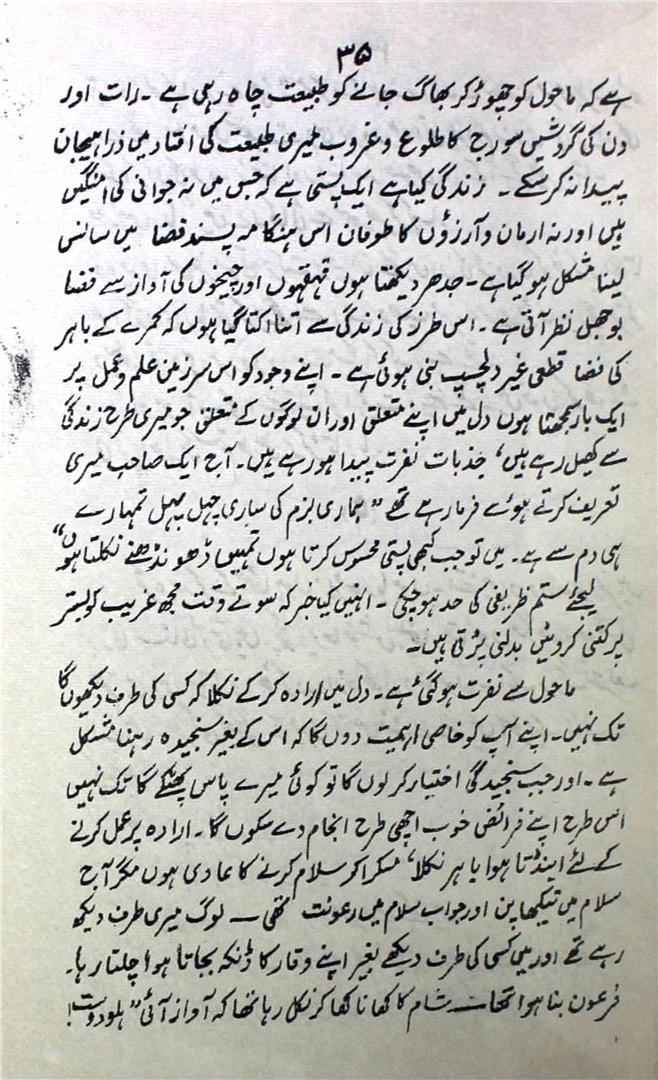 ۳۵
ہے کہ ماحول کو چھوڑ کر بھاگ جانے کو طبیعت چاہ رہی ہے ۔ رات اور
دن کی گردشیں سورج کا طلوع و غروب میری طبیعت کی افتاد میں ذرا ہیجان
پیدا نہ کر سکے ۔ زندگی کیا ہے ایک پستی ہے کہ جس میں نہ جوانی کی امنگیں
ہیں اور نہ ارمان و آرزؤں کا طوفان اس ہنگامہ پسند فضا میں سانس
لینا مشکل ہو گیا ہے ۔ جدھر دیکھتا ہوں قہقہوں اور چیخوں کی آواز سے فضا
بوجھل نظر آتی ہے ۔ اس طرز کی زندگی سے اتنا اکتا گیا ہوں کہ کمرے کے باہر
کی فضا قطعی غیر دلچسپ بنی ہوئی ہے ۔ اپنے وجود کو اس سرزمین علم و عمل پر
ایک بار سمجھتا ہوں دل میں اپنے متعلق اور ان لوگوں کے متعلق جو میری طرح زندگی
سے کھیل رہے ہیں، جذبات نفرت پیدا ہو رہے ہیں ۔ آج ایک صاحب میری
تعریف کرتے ہوئے فرما رہے تھے " ہماری بزم کی ساری چہل پہل تمہارے
ہی دم سے ہے ۔ میں تو جب کبھی پستی محسوس کرتا ہوں تمہیں ڈھونڈھنے نکلتا ہوں"
لیجئے ستم ظریفی کی حد ہو چکی ۔ انہیں کیا خبر کہ سوتے وقت مجھ غریب کو بستر
پر کتنی کروٹیں بدلنی پڑتی ہیں ۔
ماحول سے نفرت ہو گئی ہے ۔ دل میں ارادہ کر کے نکلا کہ کسی کی طرف دیکھوں گا
تک نہیں ۔ اپنے آپ کو خاصی اہمیت دوں گا کہ اس کے بغیر سنجیدہ رہنا مشکل
ہے ۔ اور جب سنجیدگی اختیار کر لوں گا تو کوئی میرے پاس پھٹکے گا تک نہیں
اس طرح اپنے فرائض خوب اچھی طرح انجام دے سکوں گا ۔ ارادہ پر عمل کرنے
کے لئے اینڈتا ہوا باہر نکلا، مسکرا کر سلام کرنے کا عادی ہوں مگر آج
سلام میں تیکھا پن اور جواب سلام میں رعونت تھی ــ لوگ میری طرف دیکھ
رہے تھے اور میں کسی کی طرف دیکھے بغیر اپنے وقار کا ڈنکہ بجاتا ہوا چلتا رہا ۔
فرعون بنا ہوا تھا ــ شام کا کھانا کھا کر نکل رہا تھا کہ آواز آئی " ہلو دوست !